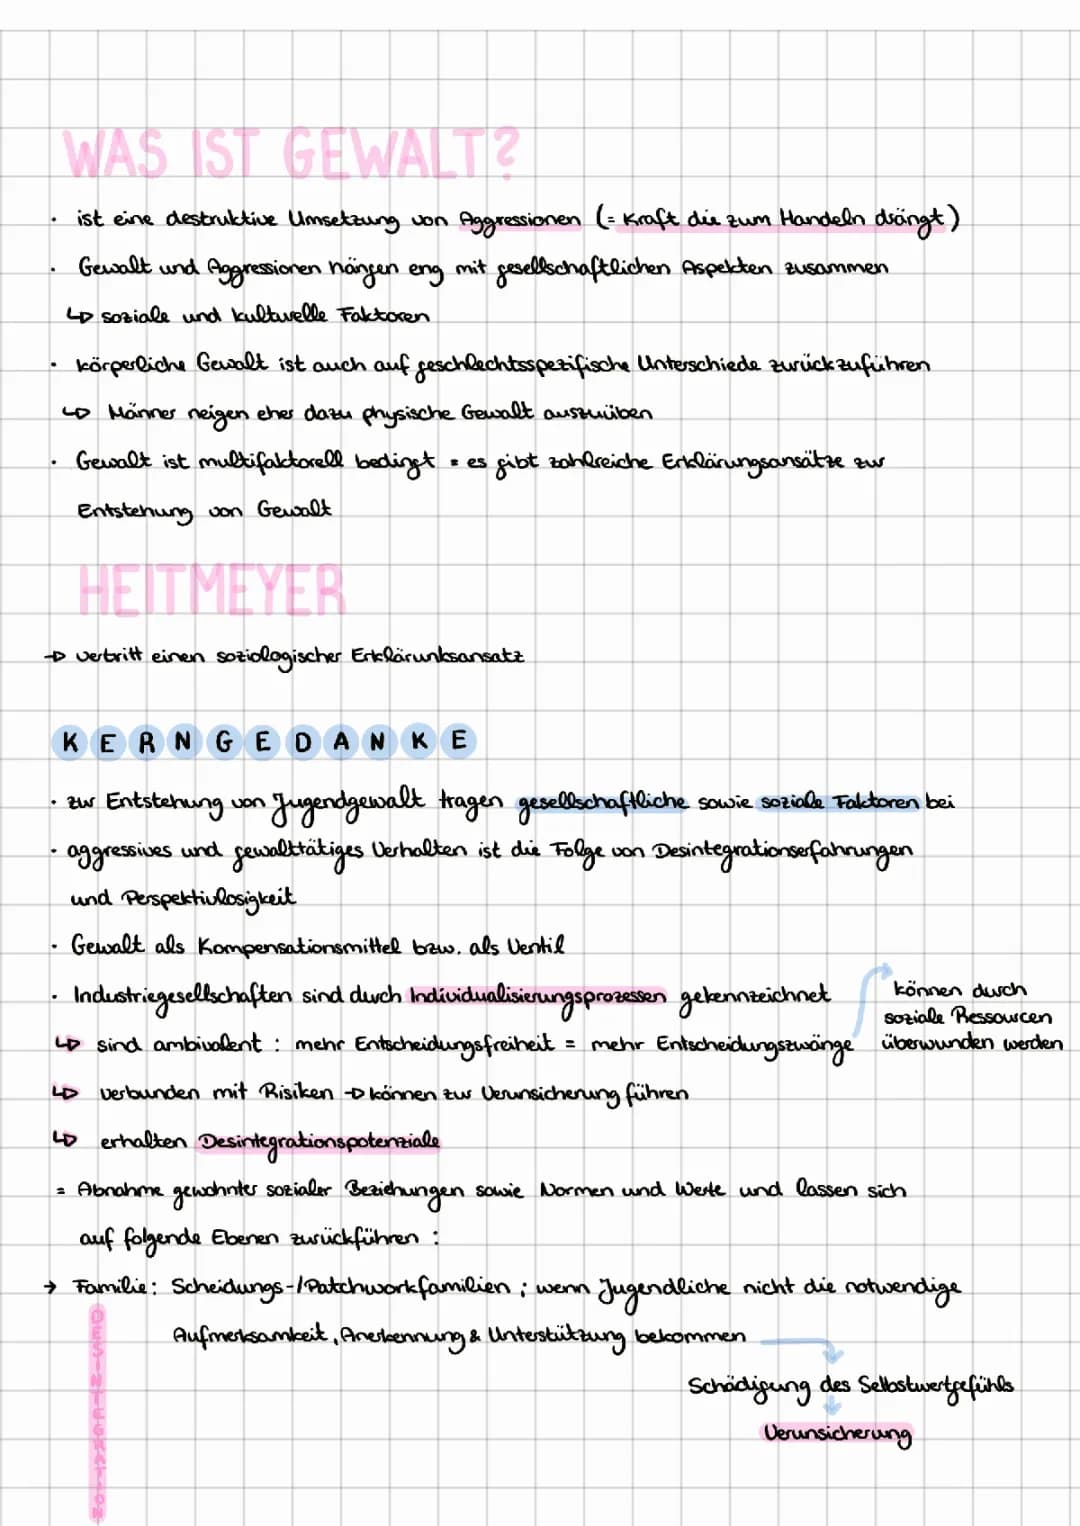 WAS IST GEWALT?
· ist eine destruktive Umsetzung von Aggressionen (= Kraft die zum Handeln drängt)
· Gewalt und Aggressionen hängen eng mit gesellschaftlichen Aspekten zusammen
↳ soziale und kulturelle Faktoren
· körperliche Gewalt ist auch auf geschlechtsspezifische Unterschiede zurückzuführen
↳ Männer neigen eher dazu physische Gewalt auszuüben
· Gewalt ist multifaktorell bedingt = es gibt zahlreiche Erklärungsansätze zur
Entstehung von Gewalt
HEITMEYER
→ vertritt einen soziologischer Erklärunksansatz
KERNGEDANKE
· zur Entstehung von Jugendgewalt tragen gesellschaftliche sowie soziale Faktoren bei
· aggressives und gewalttätiges Verhalten ist die Folge von Desintegrationserfahrungen
und Perspektivlosigkeit
· Gewalt als Kompensationsmittel bzw. als Ventil
· Industriegesellschaften sind durch Individualisierungsprozessen gekennzeichnet
↳ sind ambivalent : mehr Entscheidungsfreiheit = mehr Entscheidungszwänge
können durch
soziale Ressourcen
überwunden werden
↳ verbunden mit Risiken → können zur Verunsicherung führen
↳ erhalten Desintegrationspotenziale
= Abnahme gewohnter sozialer Beziehungen sowie Normen und Werte und lassen sich
auf folgende Ebenen zurückführen :
→ Familie: Scheidungs-/Patchworkfamilien ; wenn Jugendliche nicht die notwendige
Aufmerksamkeit, Anerkennung & Unterstützung bekommen
Schädigung des Selbstwertgefühls
Verunsicherung
DESINTEGRATION